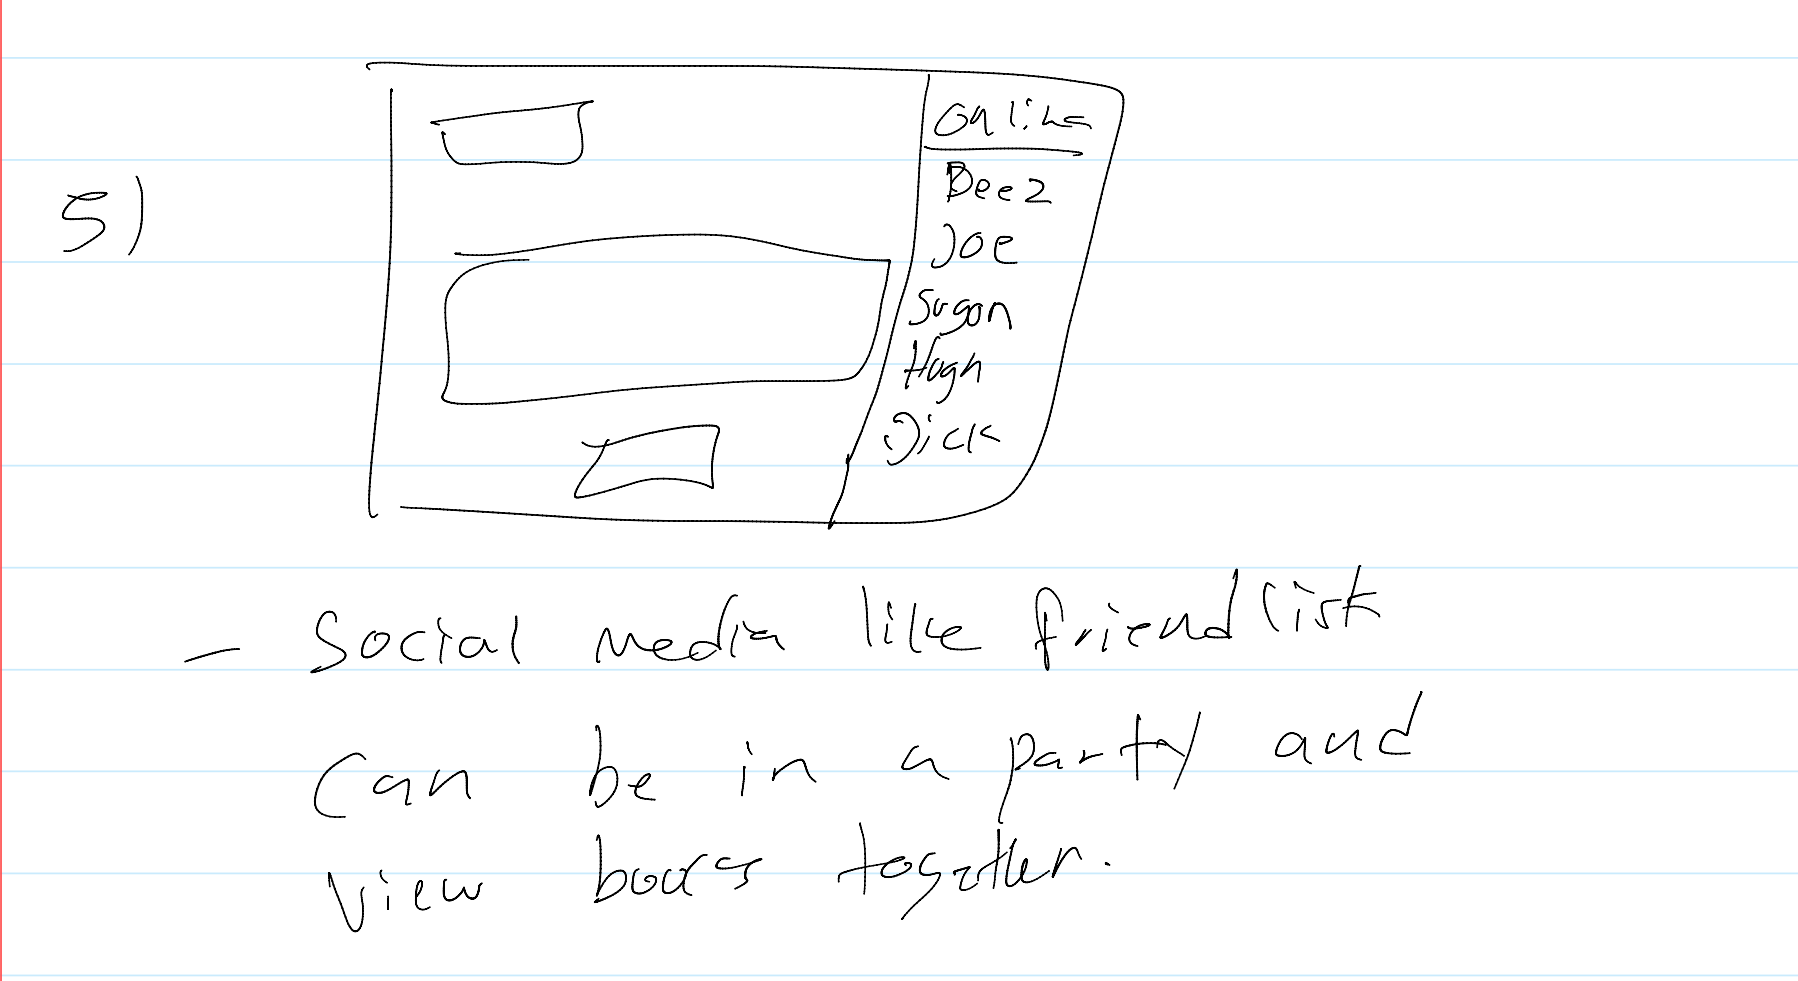 5)
Online
Deez
Joe
Sugon
Hugh
Dick
- Social media like friend list
Can be in a party and
view books together.